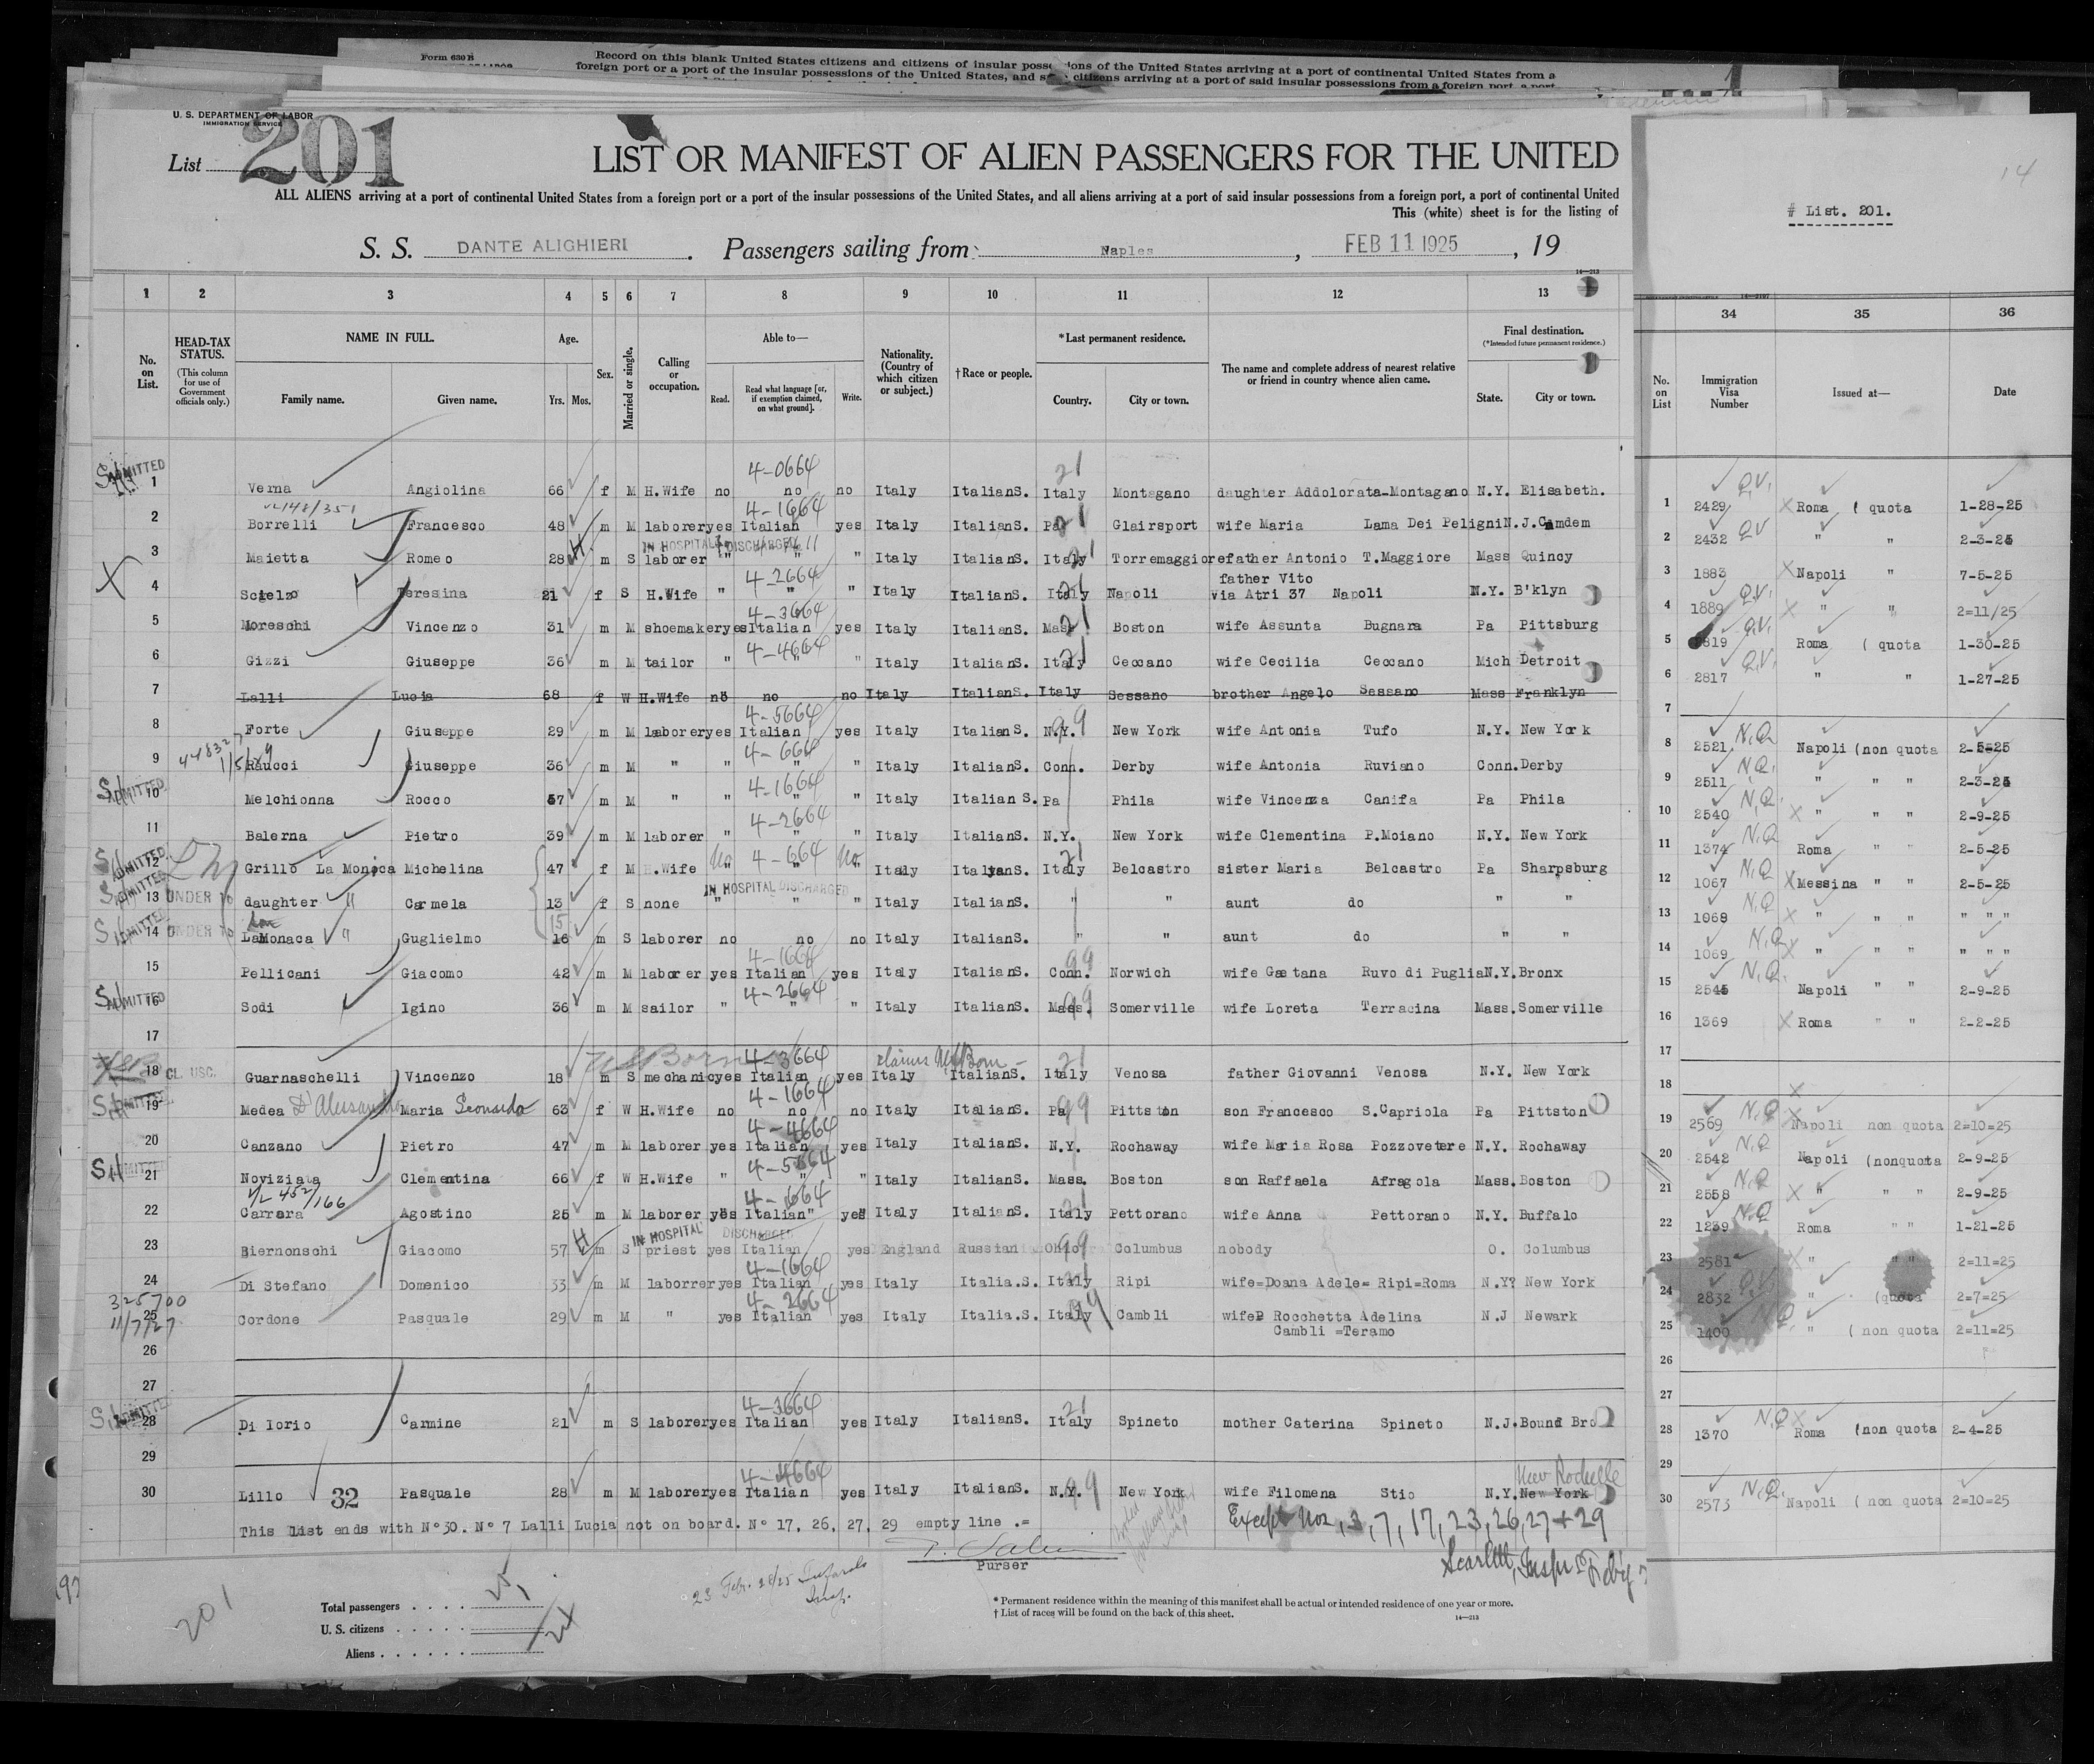 Form 630 B
Record on this blank United States citizens and citizens of insular possessions of the United States arriving at a port of continental United States from a
foreign port or a port of the insular possessions of the United States, and citizens arriving at a port of said insular possessions from a foreign port, a port
U. S. DEPARTMENT OF LABOR
IMMIGRATION SERVICE
List 201
LIST OR MANIFEST OF ALIEN PASSENGERS FOR THE UNITED
ALL ALIENS arriving at a port of continental United States from a foreign port or a port of the insular possessions of the United States, and all aliens arriving at a port of said insular possessions from a foreign port, a port of continental United
This (white) sheet is for the listing of
14
# List. 201.
S. S. DANTE ALIGHIERI. Passengers sailing from Naples, FEB 11 1925, 19
14-213
1 2 3 4 5 6 7 8 9 10 11 12 13 34 35 36
No. on List. HEAD-TAX STATUS. (This column for use of Government officials only.) NAME IN FULL. Family name. Given name. Age. Yrs. Mos. Sex. Married or single. Calling or occupation. Able to— Read. Read what language [or, if exemption claimed, on what ground]. Write. Nationality. (Country of which citizen or subject.) †Race or people. *Last permanent residence. Country. City or town. The name and complete address of nearest relative or friend in country whence alien came. Final destination. (*Intended future permanent residence.) State. City or town. No. on List Immigration Visa Number Issued at— Date
4-0664 21
ADMITTED 1 Verna Angiolina 66 f M H.Wife no no no Italy ItalianS. Italy Montagano daughter Addolorata-Montagano N.Y. Elisabeth. 1 2429 Q.V. Roma ( quota 1-28-25
148/351 4-1664
2 Borrelli Francesco 48 m M laborer yes Italian yes Italy ItalianS. Pa 21 Glairsport wife Maria Lama Dei Peligni N.J. Camdem 2 2432 QV " " 2-3-25
IN HOSPITAL DISCHARGED
3 Maietta Romeo 28 H m S laborer " " " Italy ItalianS. Italy 21 Torremaggiore father Antonio T.Maggiore Mass Quincy 3 1883 Napoli " 7-5-25
4-2664 father Vito
X 4 Scielzo Teresina 21 f S H.Wife " " " Italy ItalianS. Italy 21 Napoli via Atri 37 Napoli N.Y. B'klyn 4 1889 Q.V. " " 2=11/25
4-3664
5 Moreschi Vincenzo 31 m M shoemaker yes Italian yes Italy ItalianS. Mass 21 Boston wife Assunta Bugnara Pa Pittsburg 5 819 Q.V. Roma ( quota 1-30-25
4-4664
6 Gizzi Giuseppe 36 m M tailor " " " Italy ItalianS. Italy 21 Ceccano wife Cecilia Ceccano Mich Detroit 6 2817 Q.V. " " 1-27-25
7 Lalli Lucia 68 f W H.Wife no no no Italy ItalianS. Italy Sessano brother Angelo Sessano Mass Franklyn 7
4-5664
8 Forte Giuseppe 29 m M laborer yes Italian yes Italy ItalianS. N.Y. 99 New York wife Antonia Tufo N.Y. New York 8 2521 N.Q. Napoli (non quota 2-5-25
4-664
9 Raucci Giuseppe 36 m M " " " " Italy ItalianS. Conn. Derby wife Antonia Ruviano Conn. Derby 9 2511 N.Q. " " " 2-3-25
4-1664
ADMITTED 10 Melchionna Rocco 57 m M " " " " Italy ItalianS. Pa Phila wife Vincenza Canifa Pa Phila 10 2540 N.Q. " " " 2-9-25
4-2664
11 Balerna Pietro 39 m M laborer " " " Italy ItalianS. N.Y. New York wife Clementina P.Moiano N.Y. New York 11 1374 N.Q Roma " " 2-5-25
4-664
ADMITTED 12 Grillo La Monica Michelina 47 f M H.Wife No " No Italy ItalyanS. Italy 21 Belcastro sister Maria Belcastro Pa Sharpsburg 12 1067 N.Q Messina " " 2-5-25
IN HOSPITAL DISCHARGED
ADMITTED 13 UNDER 16 daughter " Carmela 13 f S none " " " Italy ItalianS. " " aunt do " " 13 1068 N.Q " " " " " "
15
ADMITTED 14 UNDER 16 LaMonaca " Guglielmo 16 m S laborer no no no Italy ItalianS. " " aunt do " " 14 1069 N.Q " " " " " "
4-1664
15 Pellicani Giacomo 42 m M laborer yes Italian yes Italy ItalianS. Conn. 99 Norwich wife Gaetana Ruvo di Puglia N.Y. Bronx 15 2545 N.Q. Napoli " " 2-9-25
4-2664
ADMITTED 16 Sodi Igino 36 m M sailor " " " Italy ItalianS. Mass. 99 Somerville wife Loreta Terracina Mass. Somerville 16 1369 Roma " " 2-2-25
17 17
US Born 4-3664 claims US Born - 21
18 CL. USC. Guarnaschelli Vincenzo 18 m S mechanic yes Italian yes Italy ItalianS. Italy Venosa father Giovanni Venosa N.Y. New York 18
4-1664
ADMITTED 19 Medea D'Alessandro Maria Leonarda 63 f W H.Wife no no no Italy ItalianS. Pa 99 Pittston son Francesco S.Capriola Pa Pittston 19 2569 N.Q Napoli non quota 2=10=25
4-4664
20 Canzano Pietro 47 m M laborer yes Italian yes Italy ItalianS. N.Y. Rochaway wife Maria Rosa Pozzovetere N.Y. Rochaway 20 2542 N.Q Napoli (nonquota 2-9-25
4-5664
21 Noviziata Clementina 66 f W H.Wife " " " Italy ItalianS. Mass. Boston son Raffaela Afragola Mass. Boston 21 2558 N.Q " " " 2-9-25
452/166 4-1664
22 Carrara Agostino 25 m M laborer yes Italian" yes Italy ItalianS. Italy 21 Pettorano wife Anna Pettorano N.Y. Buffalo 22 1239 N.Q Roma " " 1-21-25
IN HOSPITAL DISCHARGED
23 Biernonschi Giacomo 57 H m S priest yes Italian yes England Russian Ohio 99 Columbus nobody O. Columbus 23 2581 " " " 2=11=25
4-1664
24 Di Stefano Domenico 33 m M laborrer yes Italian yes Italy Italia.S. Italy Ripi wife=Doana Adele= Ripi=Roma N.Y? New York 24 2832 Q.V. " (quota 2=7=25
325700 4-2664
11/7/27 25 Cordone Pasquale 29 m M " yes Italian yes Italy Italia.S. Italy 99 Cambli wife Rocchetta Adelina N.J Newark 25 1400 N.Q. " ( non quota 2=11=25
Cambli =Teramo
26 26
27 27
4-3664 21
ADMITTED 28 Di Iorio Carmine 21 m S laborer yes Italian yes Italy ItalianS. Italy Spineto mother Caterina Spineto N.J. Bound Bro 28 1370 N.Q Roma (non quota 2-4-25
29 29
4-4664 New Rochelle
30 Lillo 32 Pasquale 28 m M laborer yes Italian yes Italy ItalianS. N.Y. 99 New York wife Filomena Stio N.Y. New York 30 2573 N.Q. Napoli ( non quota 2=10=25
This list ends with N°30. N° 7 Lalli Lucia not on board. N° 17, 26, 27, 29 empty line .=
Except Nos, 3, 7, 17, 23, 26, 27 + 29
Purser
201
Total passengers . . . .
U. S. citizens . . . . .
Aliens . . . . . .
* Permanent residence within the meaning of this manifest shall be actual or intended residence of one year or more.
† List of races will be found on the back of this sheet.
14-213